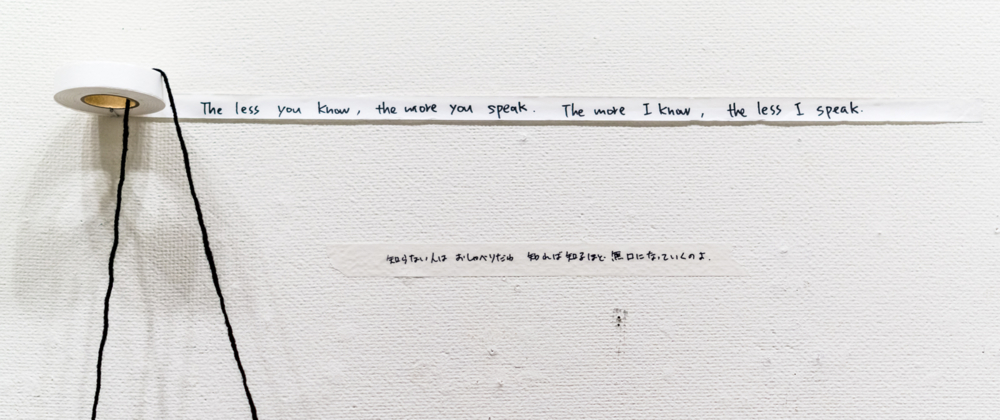 The less you know, the more you speak. The more I know, the less I speak.
知らない人は おしゃべりだわ 知れば知るほど 無口になっていくのよ.